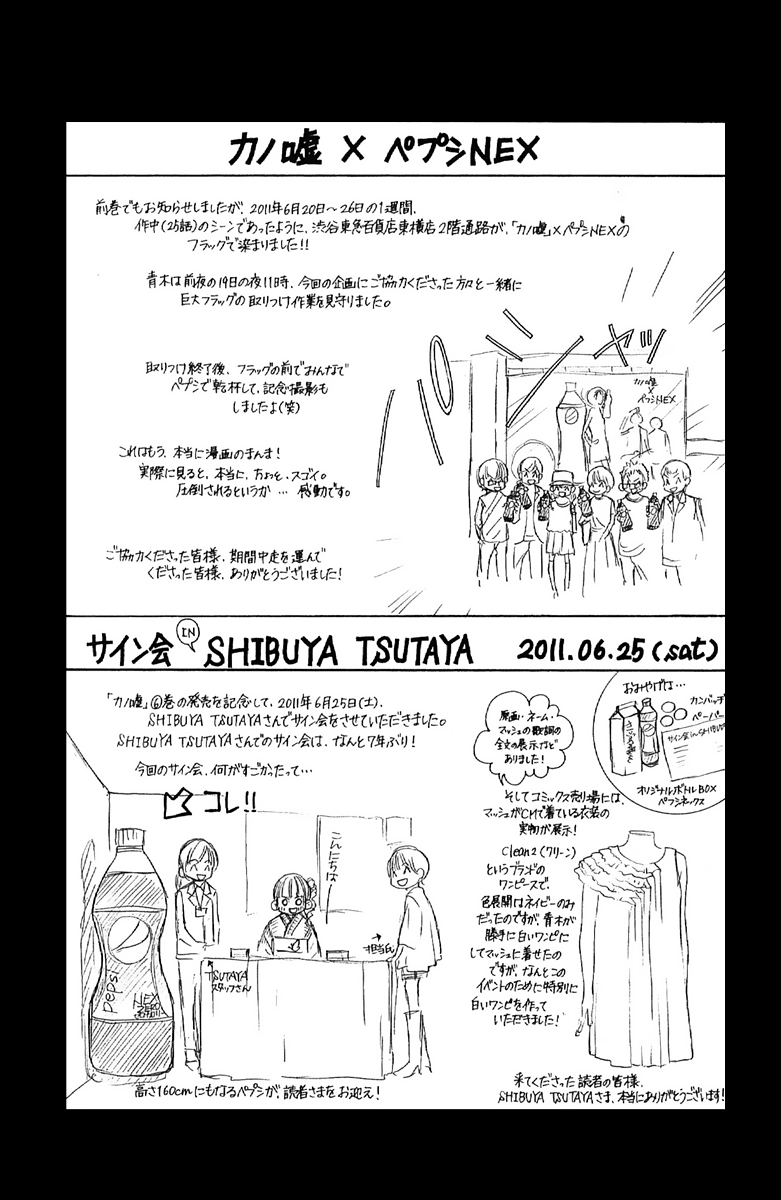 カノ嘘 × ペプシNEX
前巻でもお知らせしましたが、2011年6月20日～26日の1週間、
作中(25話)のシーンであったように、渋谷東急百貨店東横店2階通路が、「カノ嘘」×ペプシNEXの
フラッグで染まりました!!
青木は前夜の19日の夜11時、今回の企画にご協力くださった方々と一緒に
巨大フラッグの取りつけ作業を見守りました。
取りつけ終了後、フラッグの前でみんなで
ペプシで乾杯して、記念撮影も
しましたよ(笑)
これはもう、本当に漫画のまんま!
実際に見ると、本当に、ちょっと、スゴイ。
圧倒されるというか…感動です。
ご協力くださった皆様、期間中足を運んで
くださった皆様、ありがとうございました!
カノ嘘
×
ペプシNEX
サイン会 IN SHIBUYA TSUTAYA 2011.06.25(sat)
「カノ嘘」⑥巻の発売を記念して、2011年6月25日(土)、
SHIBUYA TSUTAYAさんでサイン会をさせていただきました。
SHIBUYA TSUTAYAさんでのサイン会は、なんと7年ぶり!
今回のサイン会、何がすごかったって…
コレ!!
pepsi
NEX
こんにちはー
TSUTAYA
スタッフさん
担当氏
高さ160cmにもなるペプシが、読者さまをお迎え!
原画・ネーム・
マッシュの歌詞の
全文の展示なども
ありました!
おみやげは…
カンバッヂ
ペーパー
オリジナルボトルBOX
ペプシネックス
そしてコミックス売り場には、
マッシュがCMで着ている衣装の
実物が展示!
Clean2(クリーン)
というブランドの
ワンピースで、
色展開はネイビーのみ
だったのですが、青木が
勝手に白いワンピに
してマッシュに着せたの
ですが、なんとこの
イベントのために特別に
白いワンピを作って
いただきました!
来てくださった読者の皆様、
SHIBUYA TSUTAYAさま、本当にありがとうございます!